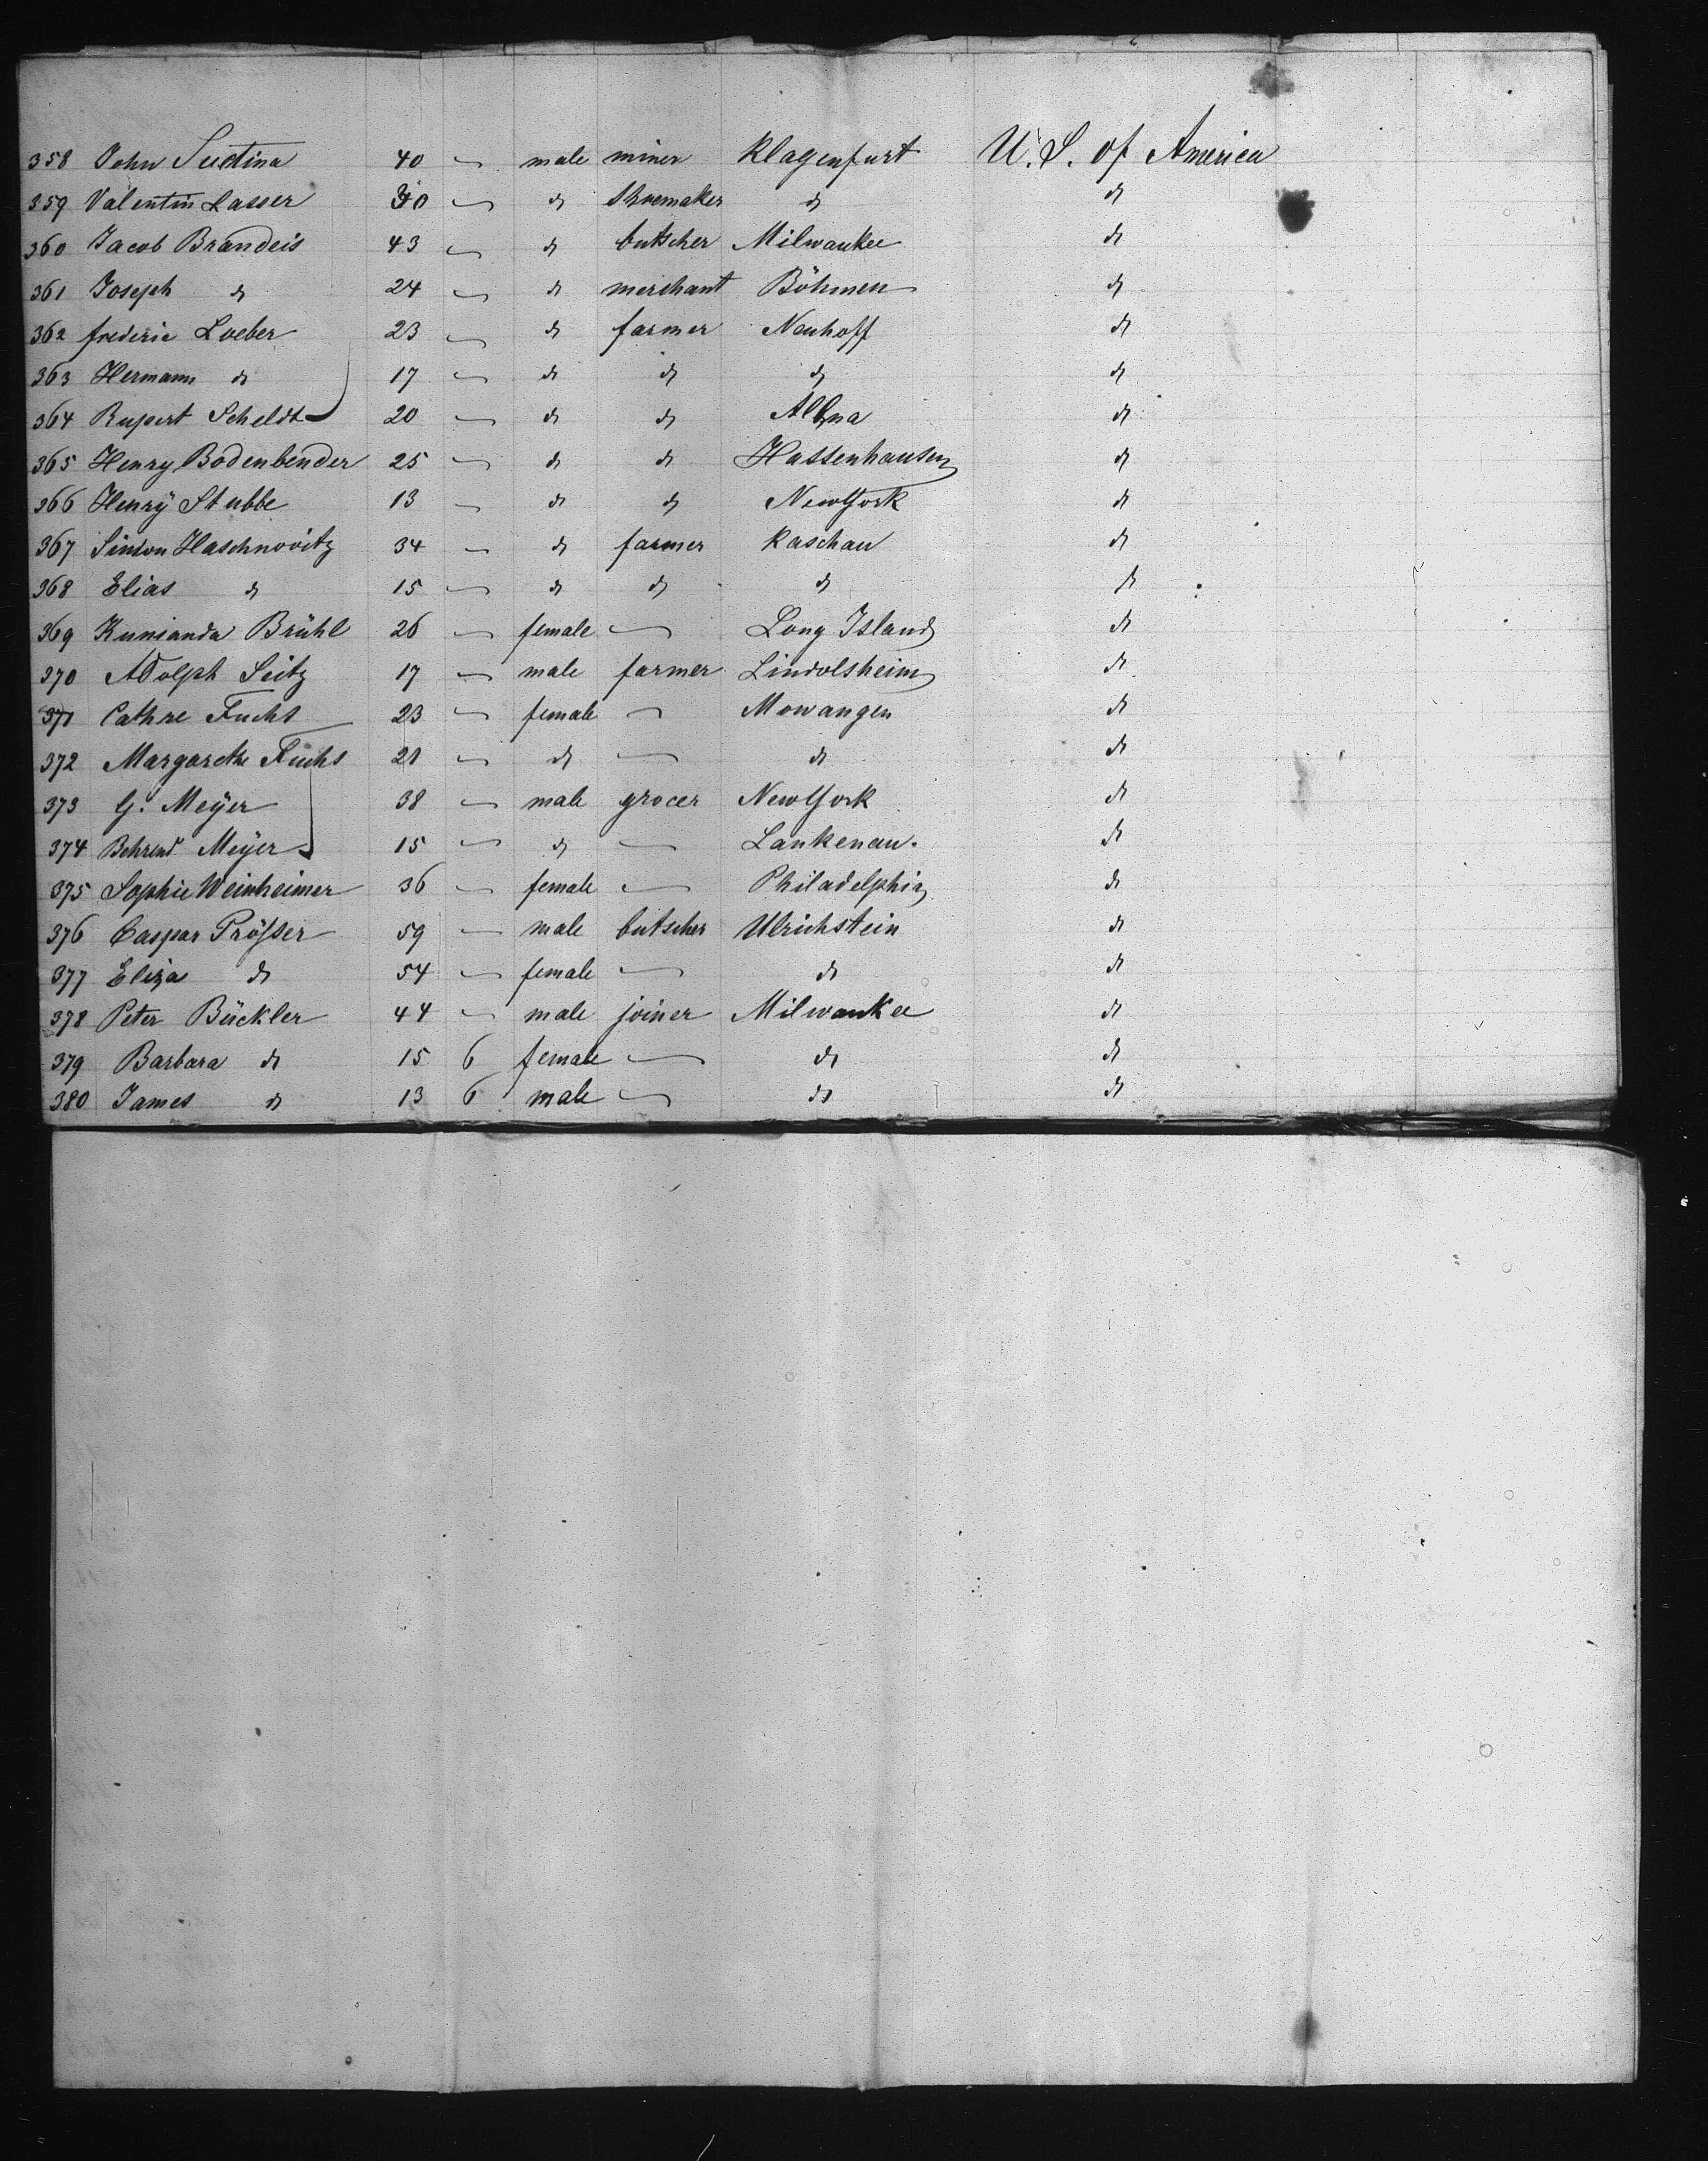 358 John Suetina 40 — male miner Klagenfurt U. S. of America
359 Valentin Lasser 30 — do Shoemaker do do
360 Jacob Brandeis 43 — do butscher Milwaukee do
361 Joseph do 24 — do merchant Böhmen do
362 frederic Loeber 23 — do farmer Neuhoff do
363 Hermann do 17 — do do do do
364 Rupert Scheldt 20 — do do do
365 Henry Bodenbender 25 — do do Hassenhausen do
366 Henrÿ Stubbe 13 — do do NewYork do
367 Simon Haschnovitz 34 — do farmer Kaschau do
368 Elias do 15 — do do do do
369 Kunianda Brühl 26 — female — Long Island do
370 Adolph Seitz 17 — male farmer Lindolsheim do
371 Cathne Fuchs 23 — female — Mowangen do
372 Margarethe Fuchs 21 — do — do do
373 G. Meÿer 38 — male grocer NewYork do
374 Behrend Meÿer 15 — do — Lankenau. do
375 Sophie Weinheimer 36 — female — Philadelphia do
376 Caspar Prößer 59 — male butscher Ulrichstein do
377 Eliza do 54 — female — do do
378 Peter Bückler 44 — male joiner Milwaukee do
379 Barbara do 15 6 female — do do
380 James do 13 6 male — do do